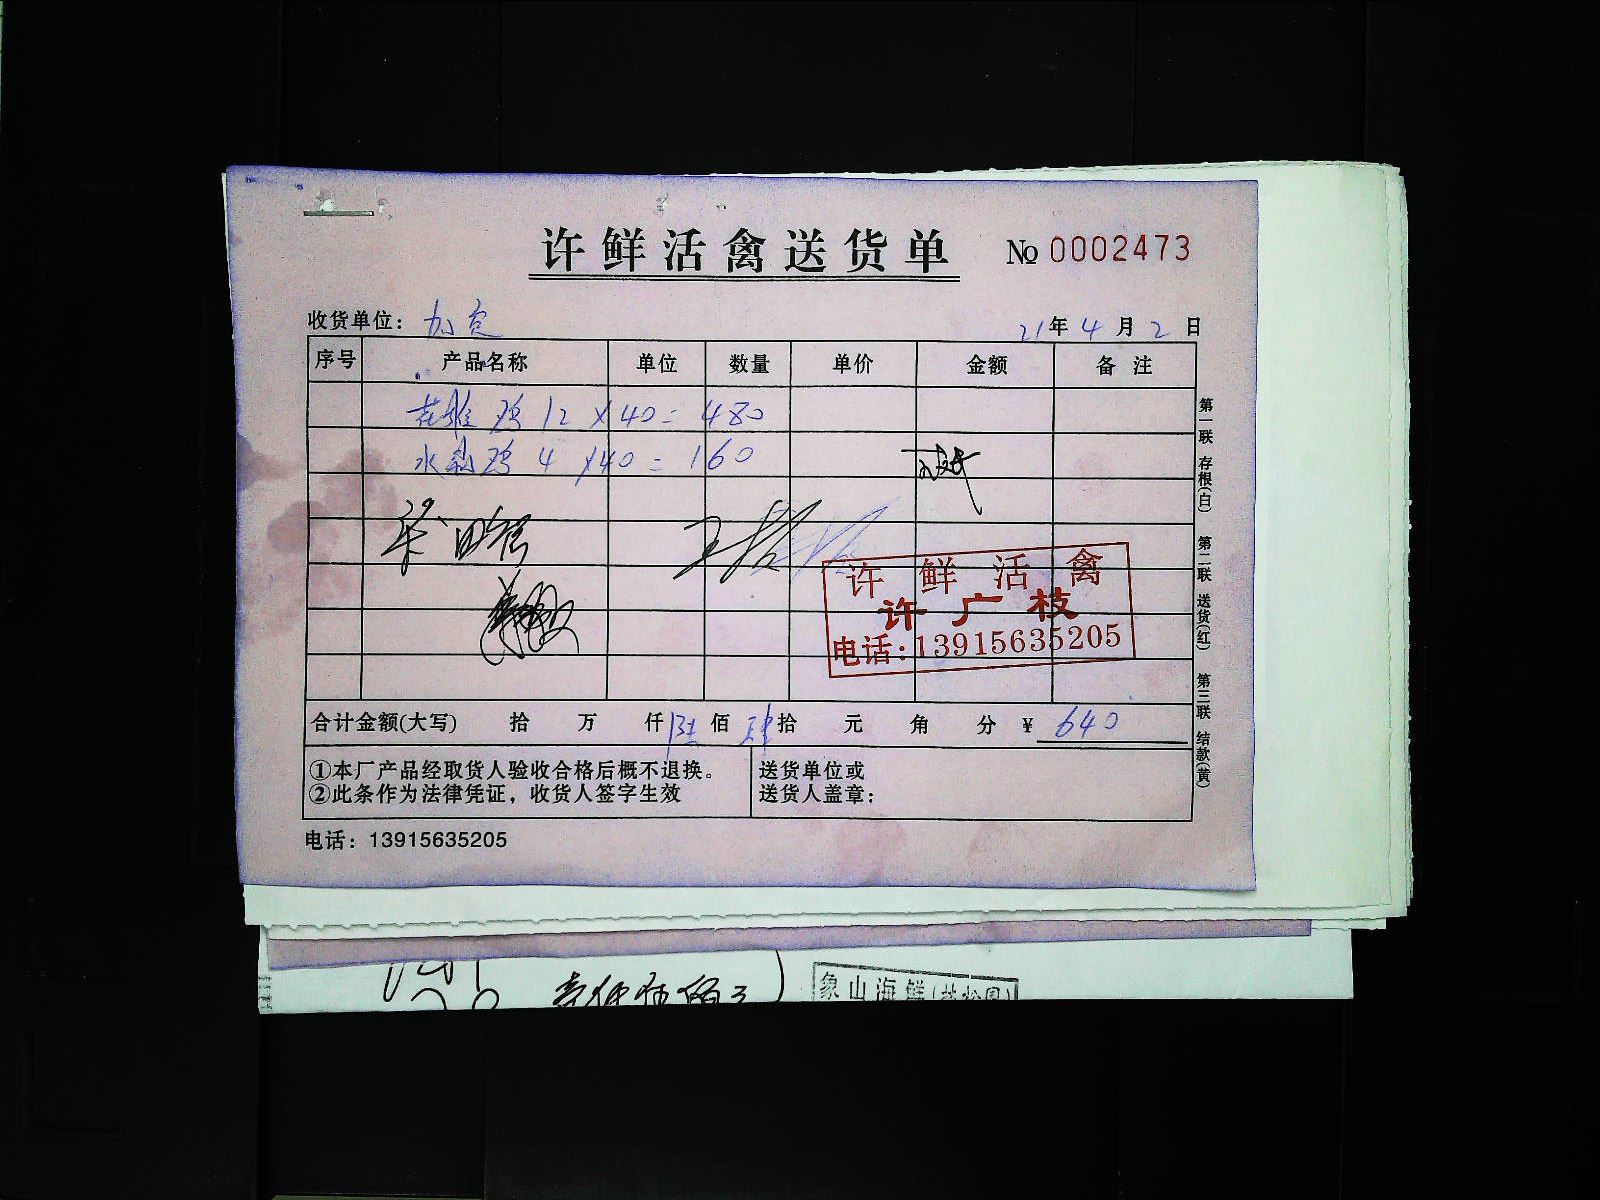 许鲜活禽送货单 № 0002473
收货单位: 加定 21年4月2日
序号 产品名称 单位 数量 单价 金额 备注
花雅鸡 12 × 40 = 480
水鸡 4 × 40 = 160
许鲜活禽
许广枝
电话:13915635205
合计金额(大写) 拾 万 仟 陆佰 肆拾 元 角 分 ¥ 640
①本厂产品经取货人验收合格后概不退换。
②此条作为法律凭证，收货人签字生效
送货单位或
送货人盖章:
电话: 13915635205
第一联 存根(白) 第二联 送货(红) 第三联 结款(黄)
象山海鲜